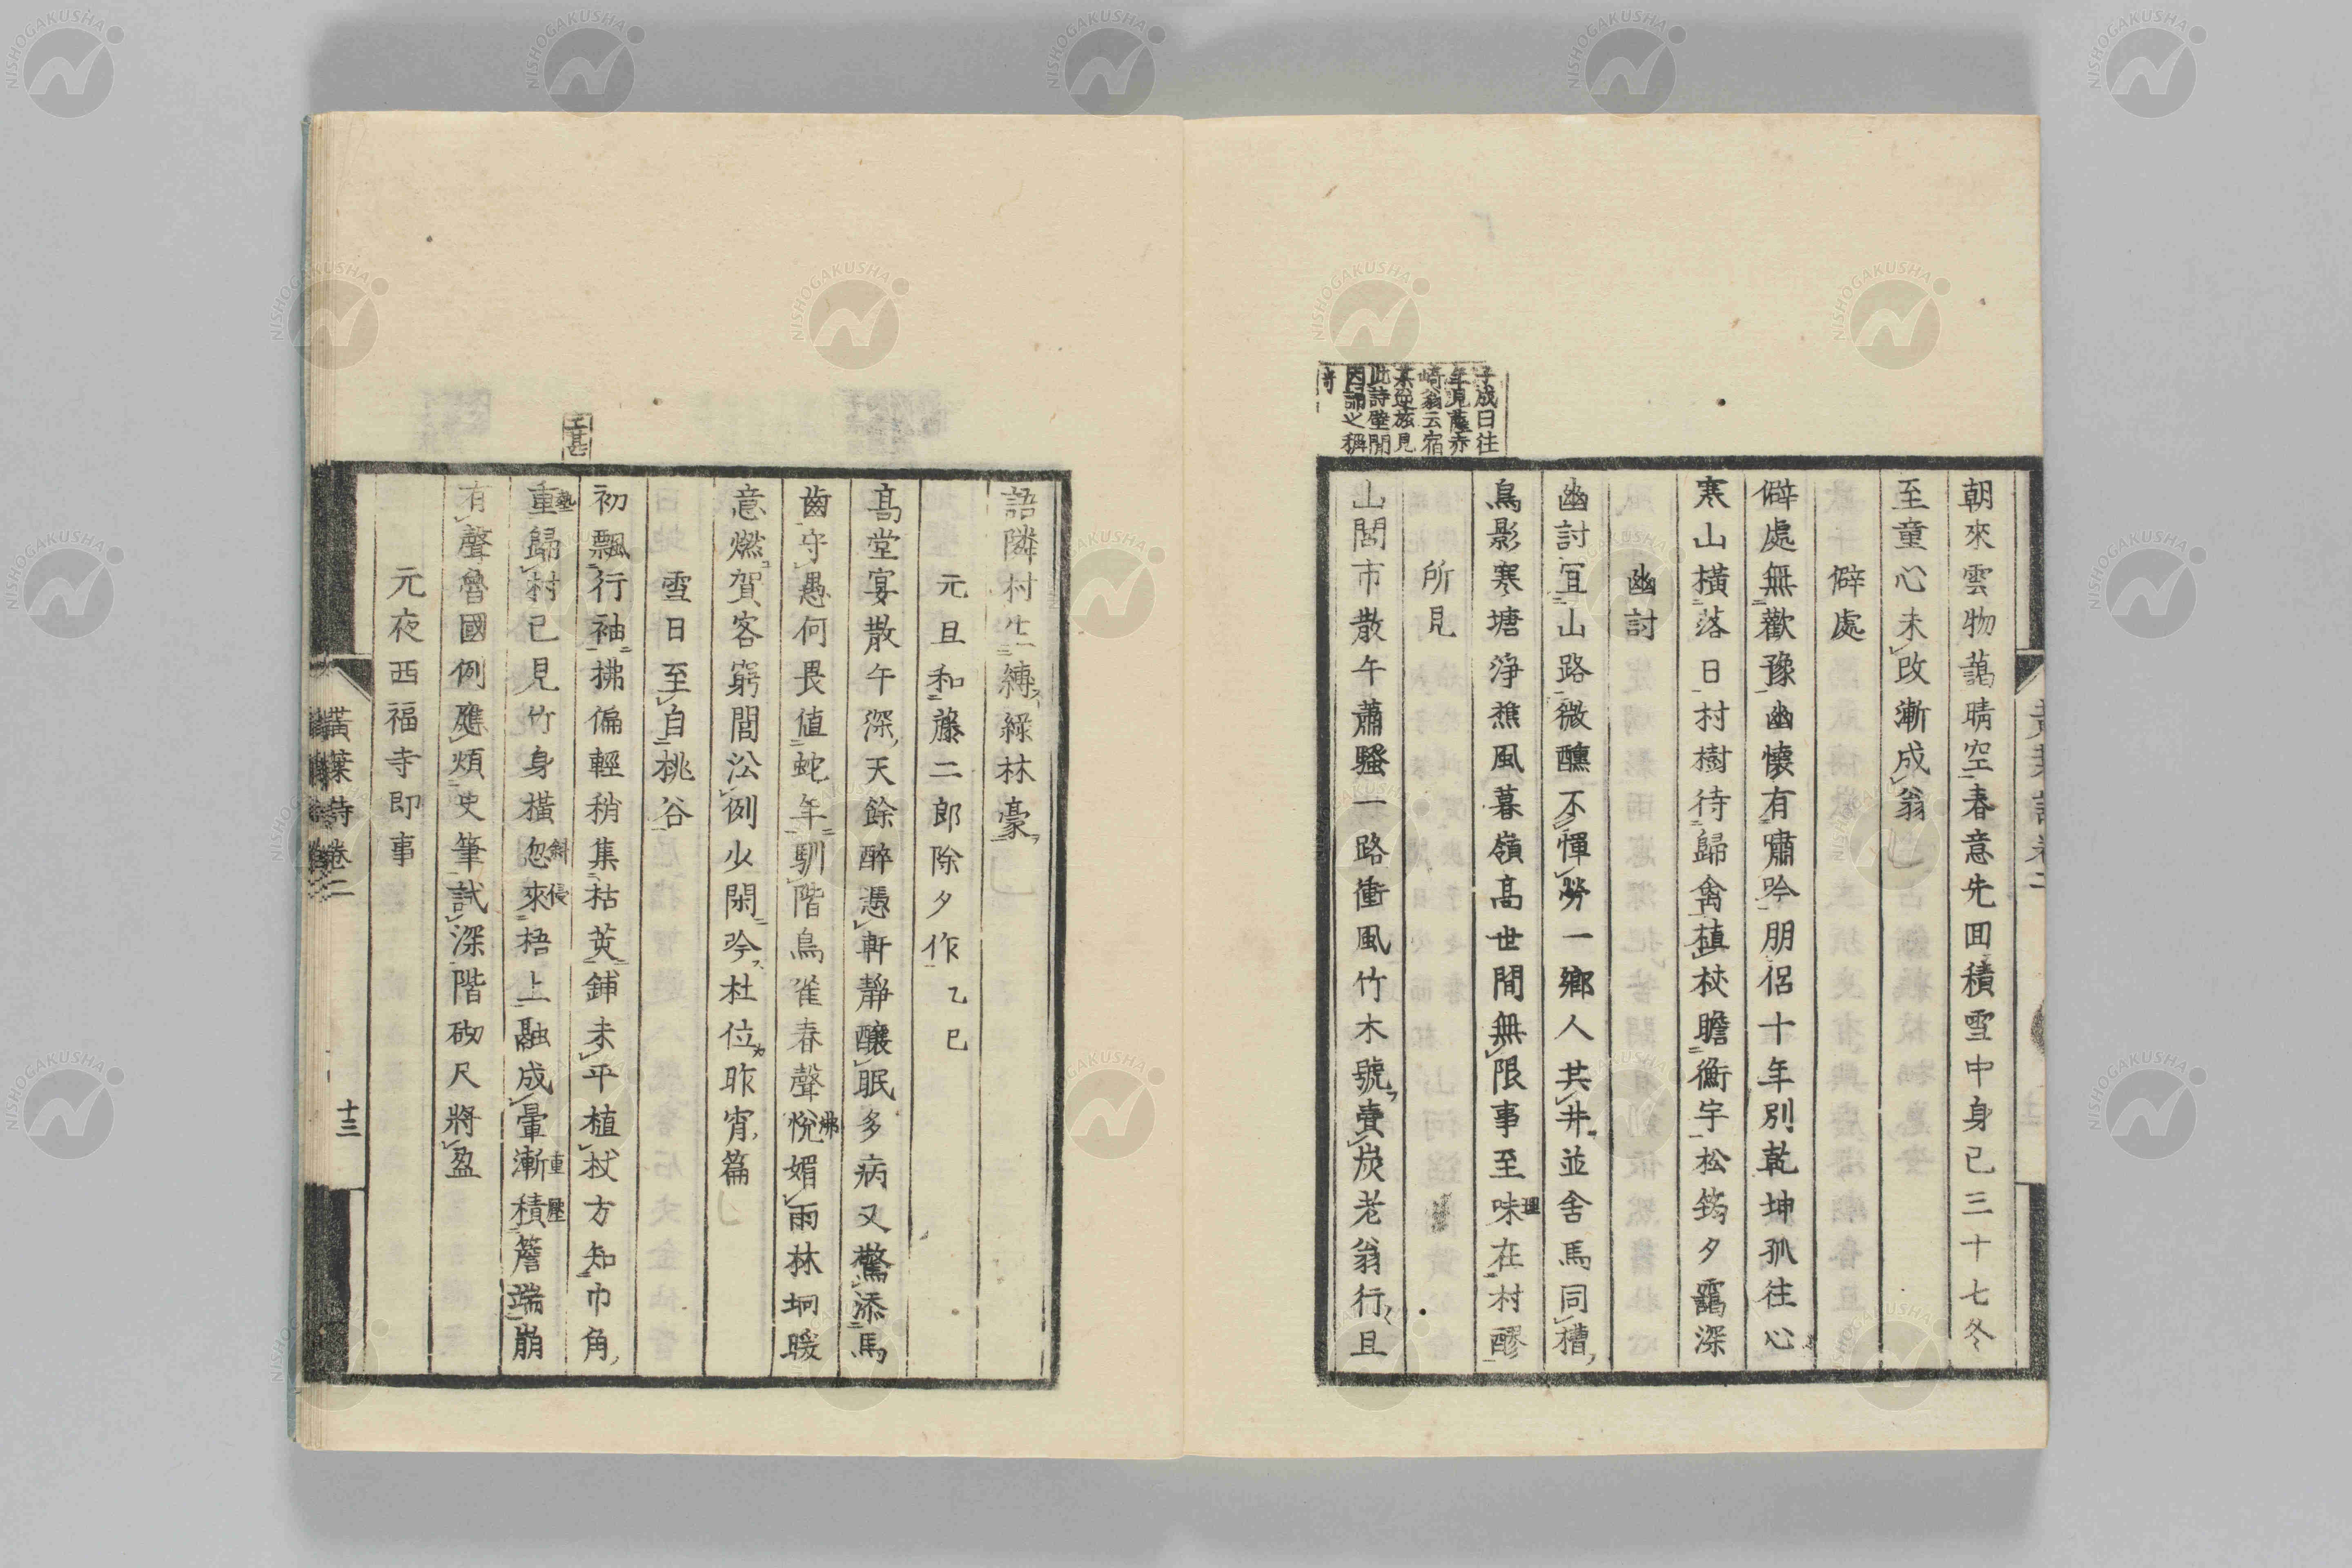 子成曰往
年見薩赤
崎翁云宿
某逆旅見
此詩壁間
因誦之稱
朝來雲物藹晴空春意先回積雪中身已三十七冬
至童心未改漸成翁
僻處
僻處無歡豫幽懷有嘯吟朋侶十年別乾坤孤往心
寒山橫落日村樹待歸禽植杖瞻衡宇松筠夕靄深
幽討
幽討宜山路微醺不憚勞一鄉人共井並舍馬同槽
鳥影寒塘淨樵風暮嶺高世間無限事至味理在村醪
所見
山閭市散午蕭騷一路衝風竹木號賣炭老翁行且
黃葉詩卷二
語隣村生縛綠林豪
元旦和藤二郎除夕作乙巳
高堂宴散午深天餘醉憑軒靜釀眠多病又驚添馬
齒守愚何畏值蛇年馴階鳥雀春聲悅沸媚雨林坰暖
意燃賀客窮閭沿例少閑吟杜位昨宵篇
雪日至自桃谷
初飄行袖拂偏輕稍集枯莢鋪未平植杖方知巾角
重墊歸村已見竹身橫忽斜來侵梧上融成暈漸重積壓簷端崩
有聲魯國例應煩史筆試深階砌尺將盈
元夜西福寺即事
黃葉詩卷二
十三
NISHOGAKUSHA